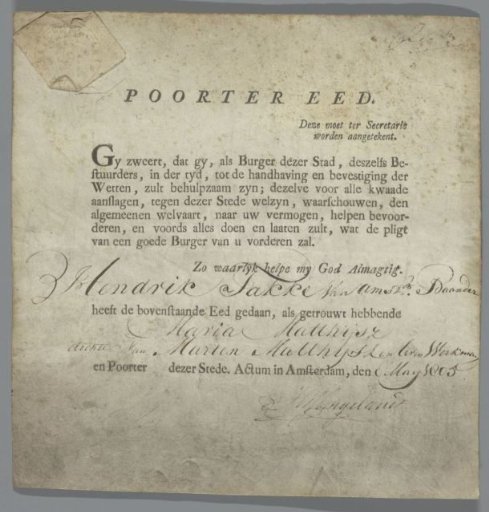 POORTER EED.
Deze moet ter Secretarie
worden aangetekent.
Gy zweert, dat gy, als Burger dezer Stad, deszelfs Be-
stuurders, in der tyd, tot de handhaving en bevestiging der
Wetten, zult behulpzaam zyn; dezelve voor alle kwaade
aanslagen, tegen dezer Stede welzyn, waarschouwen, den
algemeenen welvaart, naar uw vermogen, helpen bevoor-
deren, en voords alles doen en laaten zult, wat de pligt
van een goede Burger van u vorderen zal.
Zo waarlyk helpe my God Almagtig.
Hendrik Takke van Amst.
heeft de bovenstaande Eed gedaan, als getrouwt hebbende
Maria Matthysz
dochter van Marten Matthysz
en Poorter dezer Stede. Actum in Amsterdam, den May 1805